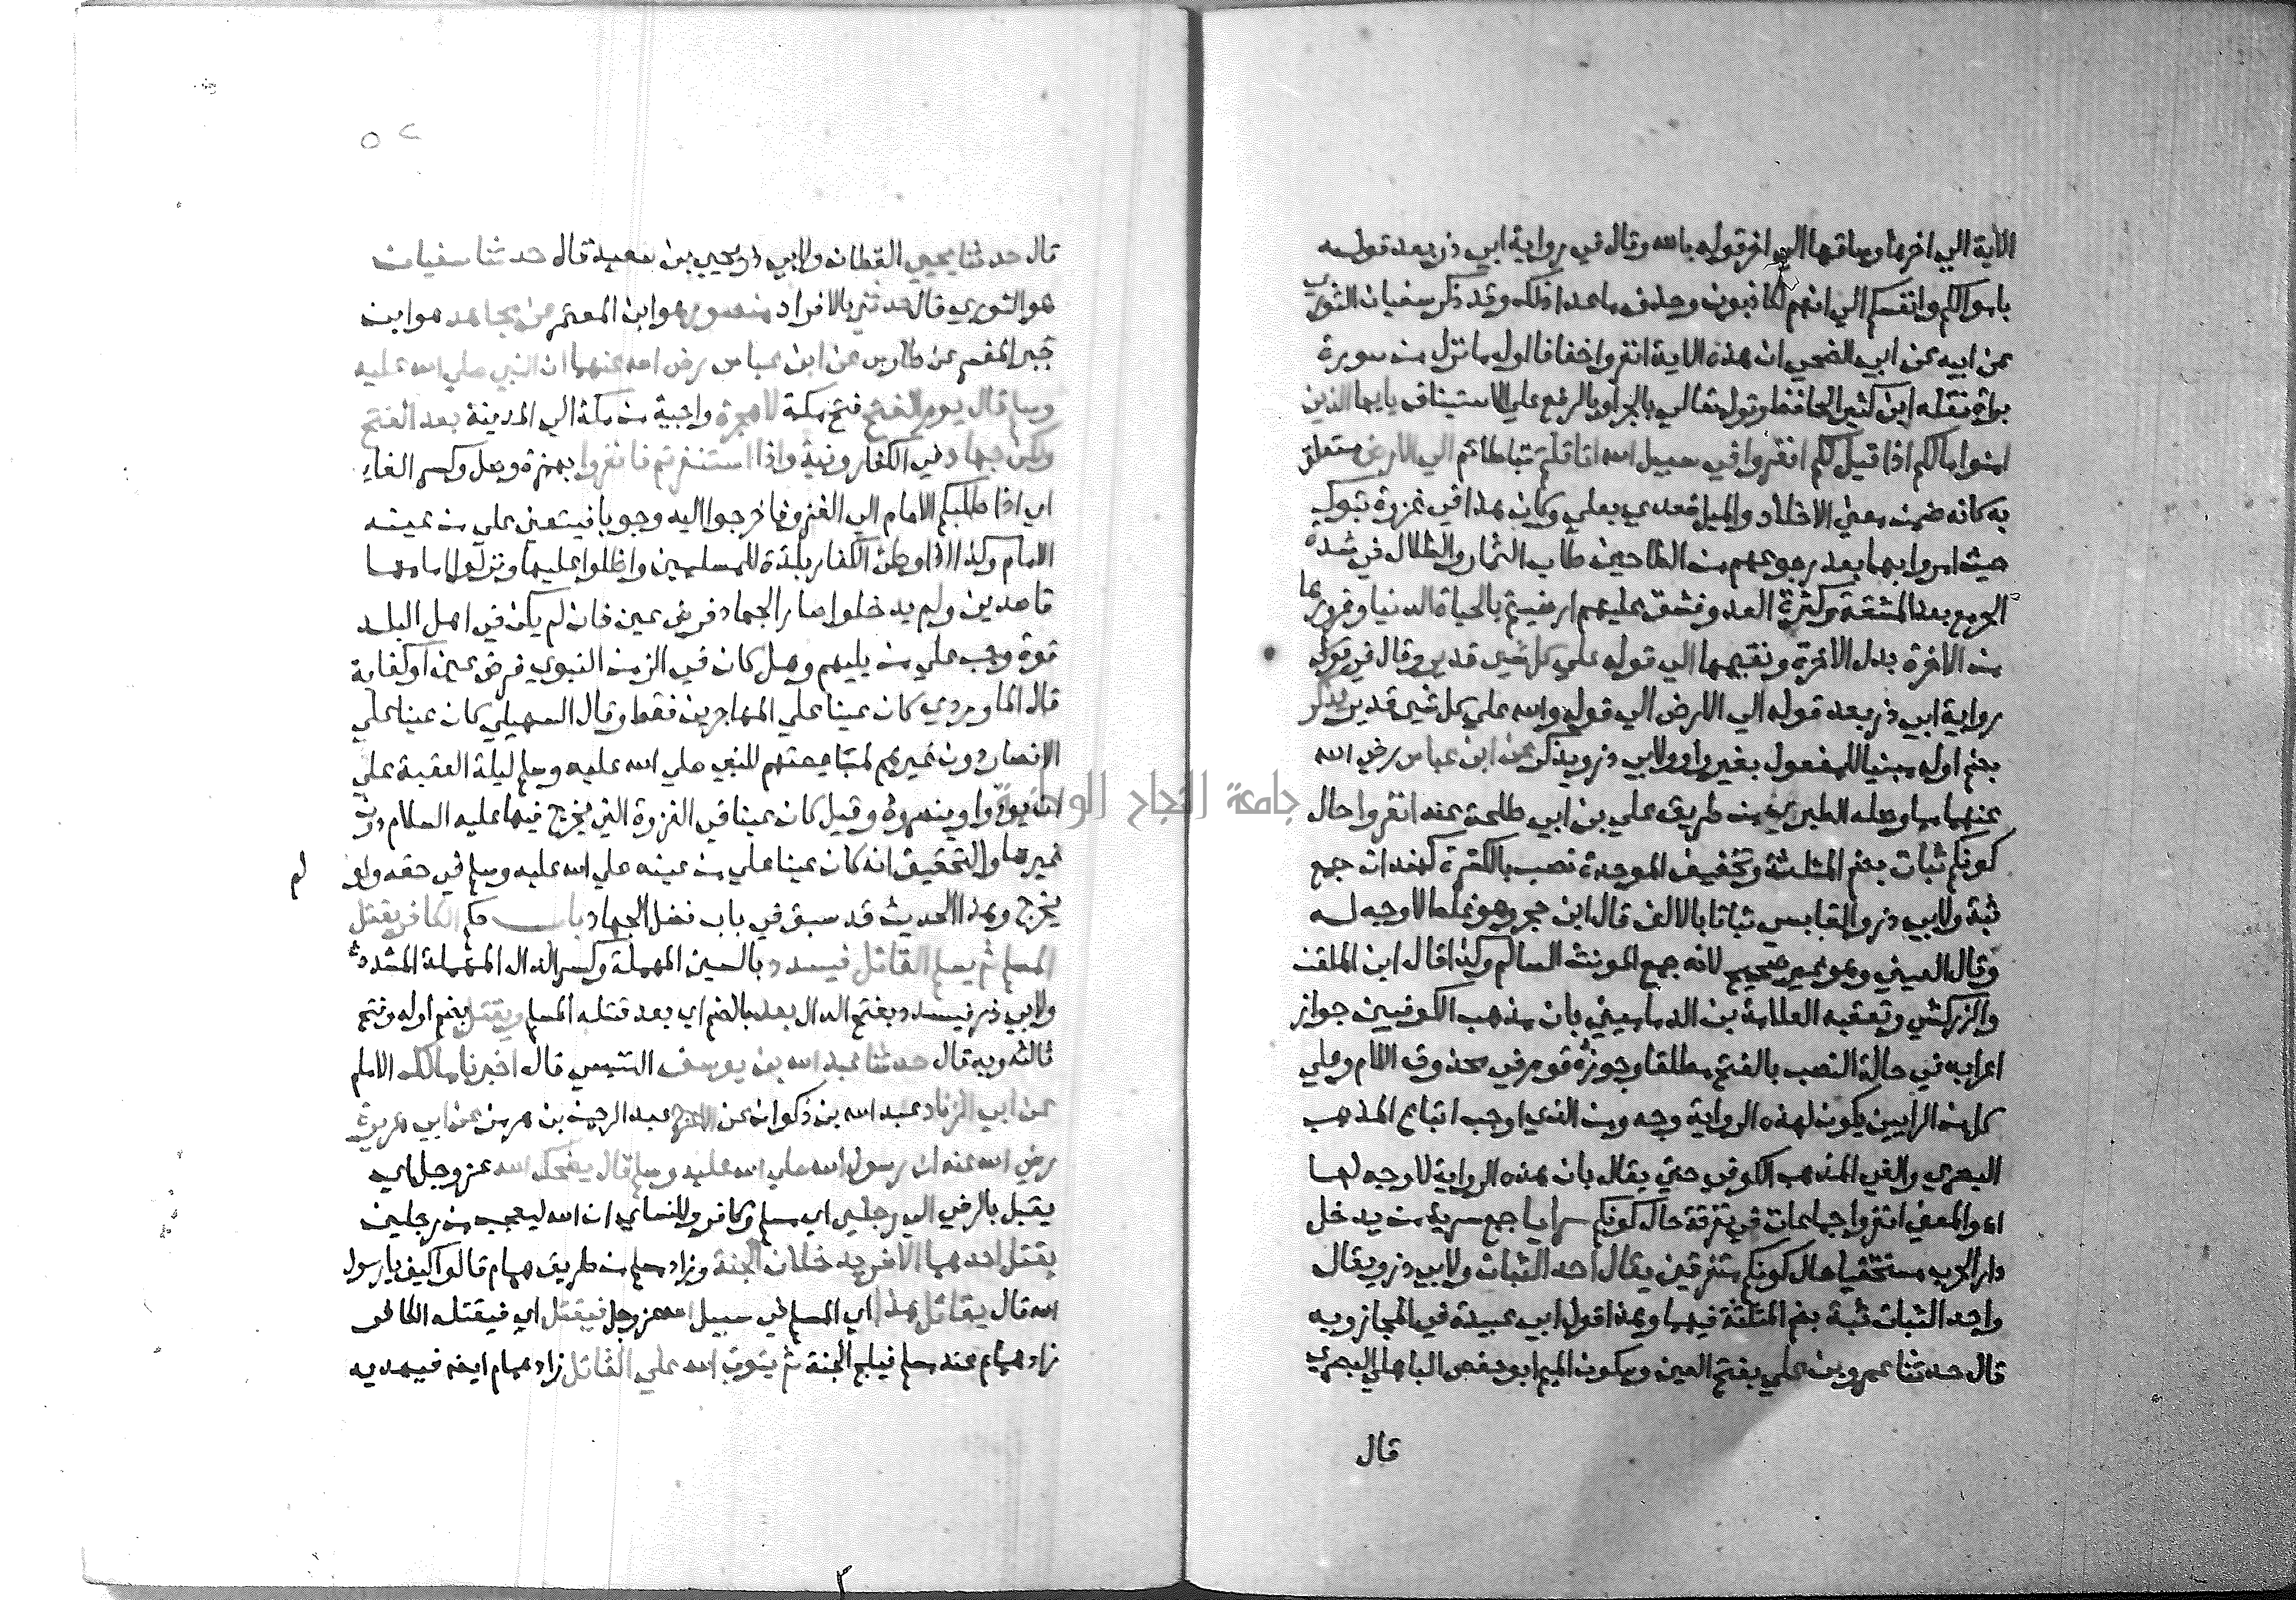 الاية الي اخرها وساقها الي اخر قوله بالله وقال في رواية ابي ذر بعد قوله
باموالكم وانفسكم الي انهم لكاذبون وحذف ما عدا ذلك وقد ذكر سفيان الثوري
عن ابيه عن ابي الضحي ان هذه الاية انفروا خفافا اول ما نزل من سورة
براة نقله ابن كثير الحافظ وقوله تعالي بالجر او بالرفع علي الاستيناف يايها الذين
امنوا مالكم اذا قيل لكم انفروا في سبيل الله اثاقلتم تباطاتم الي الارض متعلق
به كانه ضمن معني الاخلاد والميل فعدي بعلي وكان هذا في غزوة تبوك
حيث امروا بها بعد رجوعهم من الطايف حين طاب الثمار والظلال في شدة
الحر مع بعد المشقة وكثرة العدو فشق عليهم ارضيتم بالحياة الدنيا وغرورها
من الاخرة بدل الاخرة ونعيمها الي قوله علي كل شي قدير وقال في قوله
رواية ابي ذر بعد قوله الي الارض الي قوله والله علي كل شي قدير يذكر
بضم اوله مبنيا للمفعول بغير واو ولابي ذر ويذكر عن ابن عباس رضي الله
عنهما مما وصله الطبري من طريق علي بن ابي طلحة عنه انفروا حال
كونكم ثبات بضم المثلثة وتخفيف الموحدة نصب بالكسرة كهندات جمع
ثبة ولابي ذر والقابسي ثباتا بالالف قال ابن حجر وهو غلط لا وجه له
وقال العيني وهو غير صحيح لانه جمع المونث السالم وكذا قال ابن الملقن
والزركشي وتعقبه العلامة بن الدماميني بان مذهب الكوفيين جواز
اعرابه في حالة النصب بالفتح مطلقا وجوزه قوم في محذوف اللام وعلي
كل من الرايين يكون لهذه الرواية وجه ومن الذي اوجب اتباع المذهب
البصري والغي المذهب الكوفي حتي يقال بان هذه الرواية لا وجه لها
اه والمعني انفروا جماعات متفرقة حال كونكم سرايا جمع سرية من يدخل
دار الحرب مستخفيا حال كونكم متفرقين يقال احد الثبات ولابي ذر ويقال
واحد الثبات ثبة بضم المثلثة فيهما وهذا قول ابي عبيدة في المجاز وبه
قال حدثنا عمرو بن علي بفتح العين وسكون الميم ابو حفص الباهلي البصري
قال
٥٢
قال حدثنا يحيي القطان ولابي ذر يحيي بن سعيد قال حدثنا سفيان
هو الثوري قال حدثني بالافراد منصور هو ابن المعتمر عن مجاهد هو ابن
جبر المفسر عن طاوس عن ابن عباس رضي الله عنهما ان النبي صلي الله عليه
وسلم قال يوم الفتح فتح مكة لا هجرة واجبة من مكة الي المدينة بعد الفتح
ولكن جهاد في الكفار ونية واذا استنفرتم فانفروا بهمزة وصل وكسر الفاء
اي اذا طلبكم الامام الي الغزو فاخرجوا اليه وجوبا فيتعين علي من عينه
الامام وكذا اذا وطئ الكفار بلدة للمسلمين واظلوا عليها ونزلوا امامها
قاصدين ولم يدخلوا صار الجهاد فرض عين فان لم يكن في اهل البلد
قوة وجب علي من يليهم وهل كان في الزمن النبوي فرض عين او كفاية
قال الماوردي كان عينا علي المهاجرين فقط وقال السهيلي كان عينا علي
الانصار دون غيرهم لمبايعتهم للنبي صلي الله عليه وسلم ليلة العقبة علي
ان يوووا وينصروه وقيل كان عينا في الغزوة التي يخرج فيها عليه السلام دون
غيرها والتحقيق انه كان عينا علي من عينه صلي الله عليه وسلم في حقه ولو لم
يخرج وهذا الحديث قد سبق في باب فضل الجهاد باب حكم الكافر يقتل
المسلم ثم يسلم القاتل فيسدد بالسين المهملة وكسر الدال المهملة المشددة
ولابي ذر فيسدد بفتح الدال بعد بالضم اي بعد قتله المسلم ويقتل بضم اوله وفتح
ثالثه وبه قال حدثنا عبد الله بن يوسف التنيسي قال اخبرنا مالك الامام
عن ابي الزناد عبد الله بن ذكوان عن الاعرج عبد الرحمن بن هرمز عن ابي هريرة
رضي الله عنه ان رسول الله صلي الله عليه وسلم قال يضحك الله عز وجل اي
يقبل بالرضي الي رجلين اي مسلم وكافر وللنساي ان الله ليعجب من رجلين
يقتل احدهما الاخر يدخلان الجنة وزاد مسلم من طريق همام قالوا كيف يا رسول
الله قال يقاتل هذا اي المسلم في سبيل الله عز وجل فيقتل اي فيقتله الكافر
زاد همام عند مسلم فيلج الجنة ثم يتوب الله علي القاتل زاد همام ايضا فيهديه
جامعة النجاح الوطنية